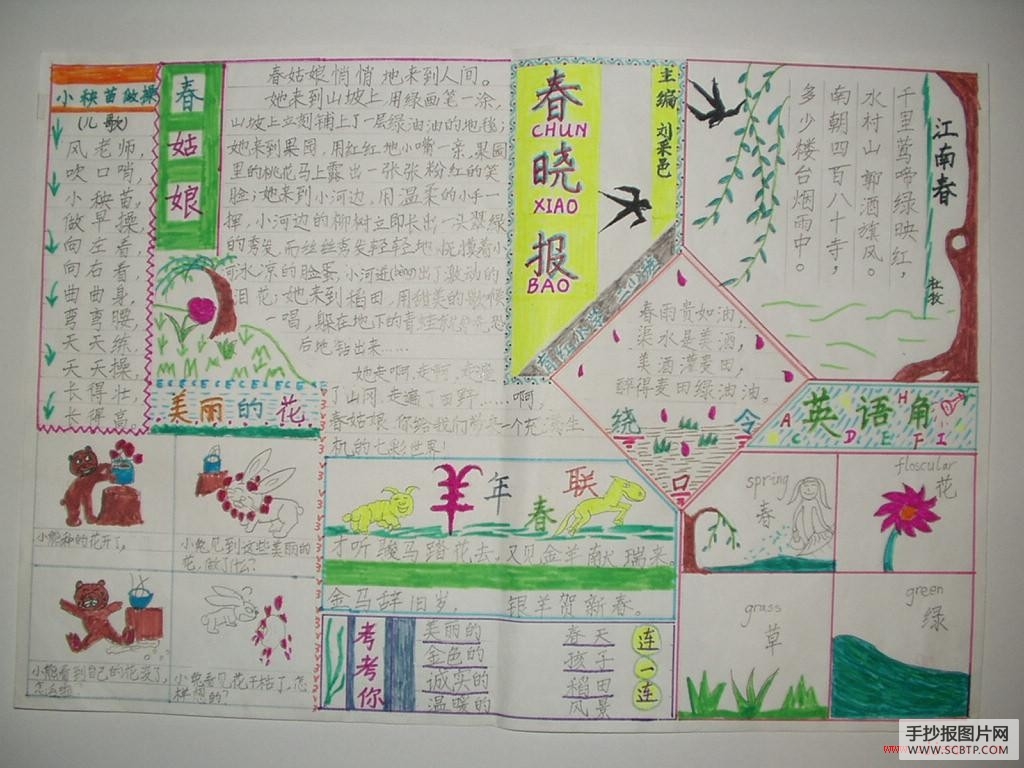 小秧苗做操
(儿歌)
风老师,
吹口哨,
小秧苗,
做早操,
向左看,
向右看,
曲曲身,
弯弯腰,
天天练,
天天操,
长得壮,
长得高。
春姑娘
春姑娘悄悄地来到人间。
她来到山坡上,用绿画笔一涂,
山坡上立刻铺上了一层绿油油的地毯;
她来到果园,用红红地小嘴一亲,果园
里的桃花马上露出一张张粉红的笑
脸;她来到小河边,用温柔的小手一
挥,小河边的柳树立即长出一头翠绿
的秀发,而丝丝秀发轻轻地抚摸着小
河冰凉的脸蛋,小河迸(bèng)出了激动的
泪花;她来到稻田,用甜美的歌喉
一唱,躲在地下的青蛙就争先恐
后地钻出来……
她走啊,走啊,走遍
了山冈,走遍了田野……啊,
春姑娘,你给我们带来一个充满生
机的七彩世界!
春晓报
CHUN
XIAO
BAO
主编 刘采邑
江南春
杜牧
千里莺啼绿映红,
水村山郭酒旗风。
南朝四百八十寺,
多少楼台烟雨中。
春雨贵如油,
渠水是美酒,
美酒灌麦田,
醉得麦田绿油油。
绕口令
美丽的花
小熊种的花开了,
小兔见到这些美丽的
花,做了什么?
小熊看到自己的花没了,
怎么啦
小兔看见花干枯了,怎
样想的?
羊年春联
才听骏马踏花去,又见金羊献瑞来。
金马辞旧岁, 银羊贺新春。
考考你
美丽的 春天
金色的 孩子
诚实的 稻田
温暖的 风景
连一连
英语角
A C D E F H I
spring
春
floscular
花
grass
草
green
绿
手抄报图片网
WWW.SCBTP.COM